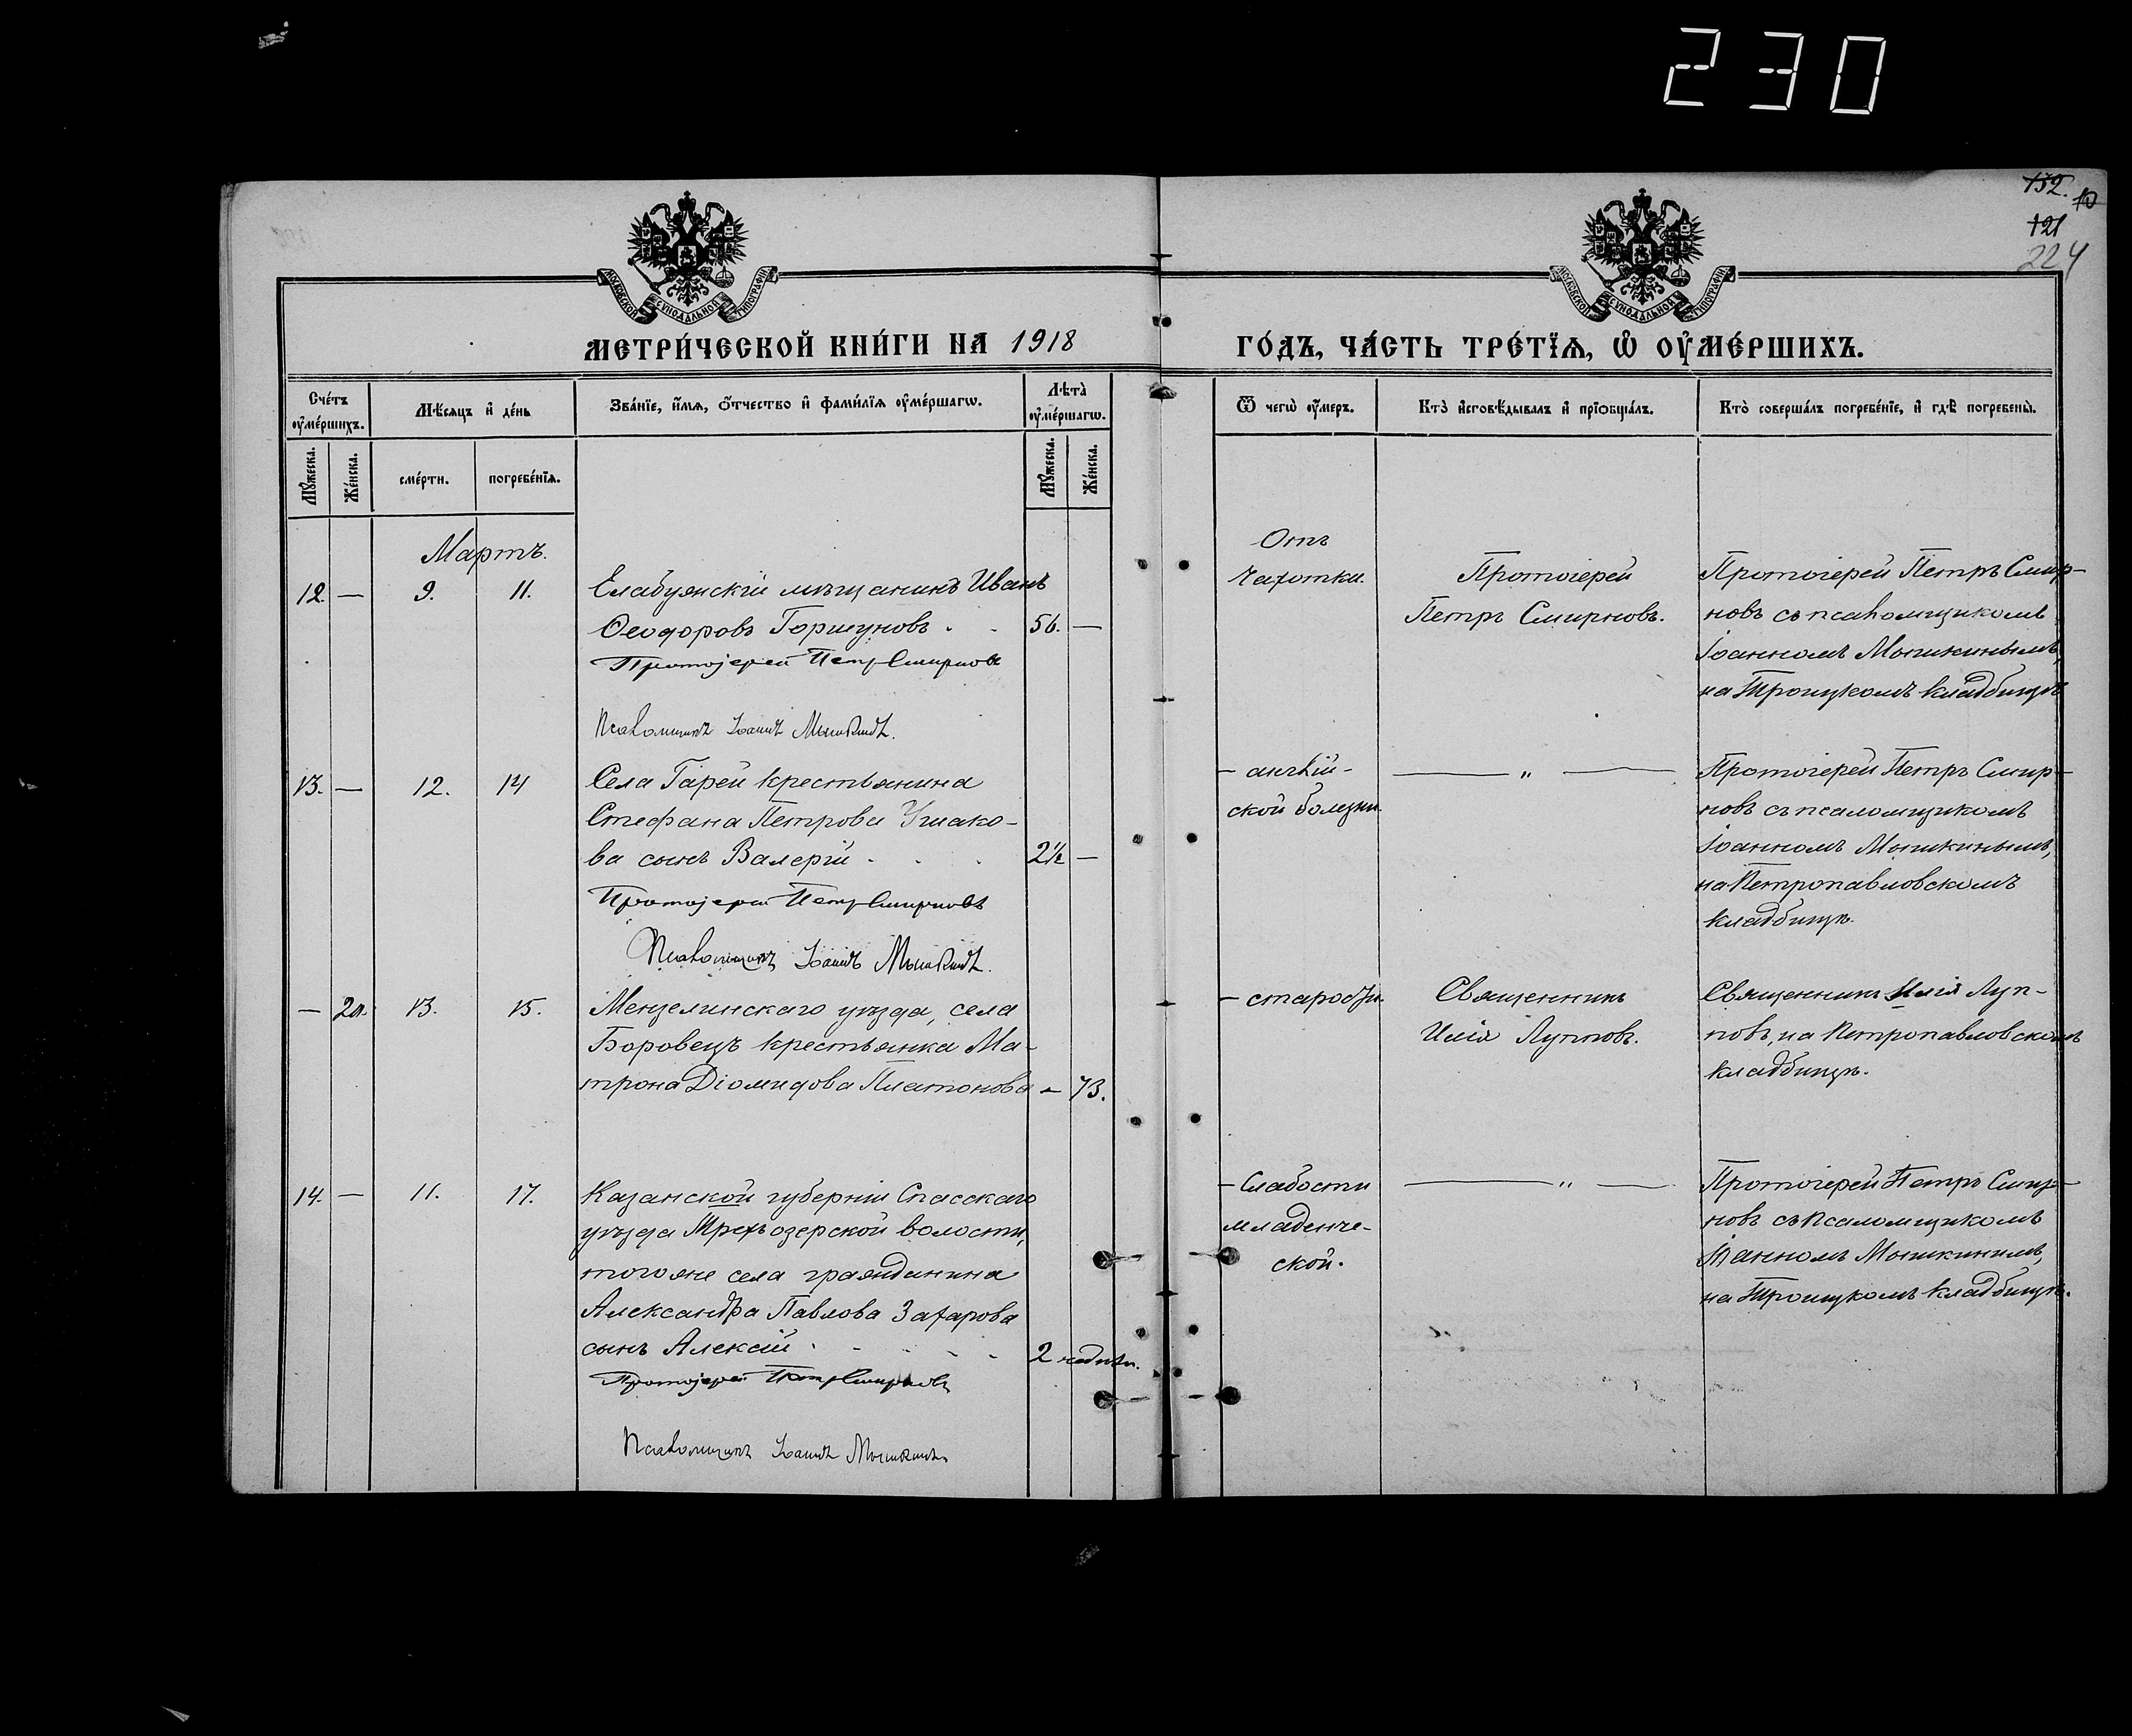 230
132.
10
121
224
МОСКОВСКОЙ СѴНОДАЛЬНОЙ ТИПОГРАФІИ
МОСКОВСКОЙ СѴНОДАЛЬНОЙ ТИПОГРАФІИ
МЕТРИ́ЧЕСКОЙ КНИ́ГИ НА 1918 ГО́ДЪ, ЧА́СТЬ ТРЕ́ТЇѦ, Ѡ҆ ОУ҆МЕ́РШИХЪ.
Сче́тъ оу҆ме́ршихъ.
Мꙋ́жеска.
Же́нска.
Мѣ́сяцъ и҆ де́нь
сме́рти.
погребе́нїѧ.
Зва́нїе, и҆́мѧ, ѻ҆́тчество и҆ фами́лїѧ оу҆ме́ршагѡ.
Лѣ́та оу҆ме́ршагѡ.
Мꙋ́жеска.
Же́нска.
Ѿ чегѡ̀ оу҆́меръ.
Кто̀ и҆сповѣ́дывалъ и҆ прїѡбща́лъ.
Кто̀ соверша́лъ погребе́нїе, и҆ гдѣ̀ погребены̀.
Мартъ.
12. — 9. 11.
Елабужскій мѣщанинъ Иванъ
Ѳеодоровъ Горшуновъ . . 56. —
Протоіерей Петръ Смирновъ
Псаломщикъ Іоаннъ Мышкинъ.
Отъ
Чахотки.
Протоіерей
Петръ Смирновъ.
Протоіерей Петръ Смир-
новъ съ псаломщикомъ
Іоанномъ Мышкинымъ,
на Троицкомъ кладбищѣ
13. — 12. 14
Села Гарей крестьянина
Стефана Петрова Ушако-
ва сынъ Валерій . . . 2½ —
Протоіерей Петръ Смирновъ
Псаломщикъ Іоаннъ Мышкинъ.
— англій-
ской болезни.
— „ —
Протоіерей Петръ Смир-
новъ съ псаломщикомъ
Іоанномъ Мышкинымъ,
на Петропавловскомъ
кладбищѣ.
— 20. 13. 15.
Мензелинскаго уѣзда, села
Боровецъ крестьянка Ма-
трона Діомидова Платонова — 73.
— старости.
Священникъ
Илія Лупповъ.
Священникъ Илія Луп-
повъ, на Петропавловскомъ
кладбищѣ.
14. — 11. 17.
Казанской губерніи Спасскаго
уѣзда Трехъозерской волости,
того же села гражданина
Александра Павлова Захарова
сынъ Алексій . . . . 2 недѣли.
Протоіерей Петръ Смирновъ
Псаломщикъ Іоаннъ Мышкинъ.
— Слабости
младенче-
ской.
— „ —
Протоіерей Петръ Смир-
новъ съ псаломщикомъ
Іоанномъ Мышкинымъ,
на Троицкомъ кладбищѣ.